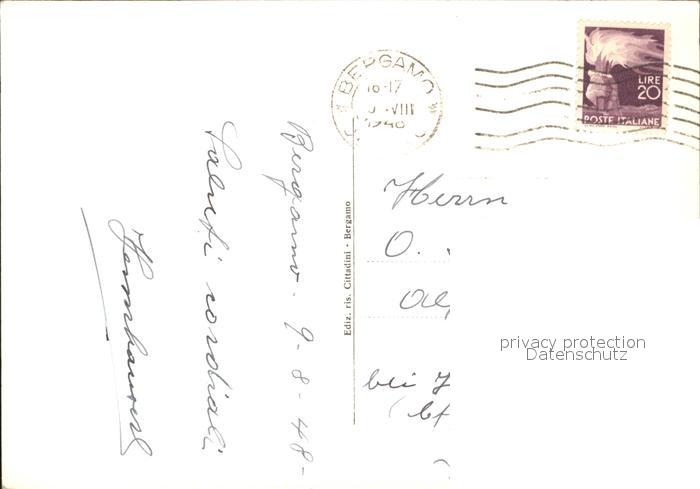 BERGAMO
16-17
VIII
1948
LIRE
20
POSTE ITALIANE
Bergamo - 9-8-48-
Saluti cordiali
Ediz. ris. Cittadini - Bergamo
Herrn
O.
bei
privacy protection
Datenschutz